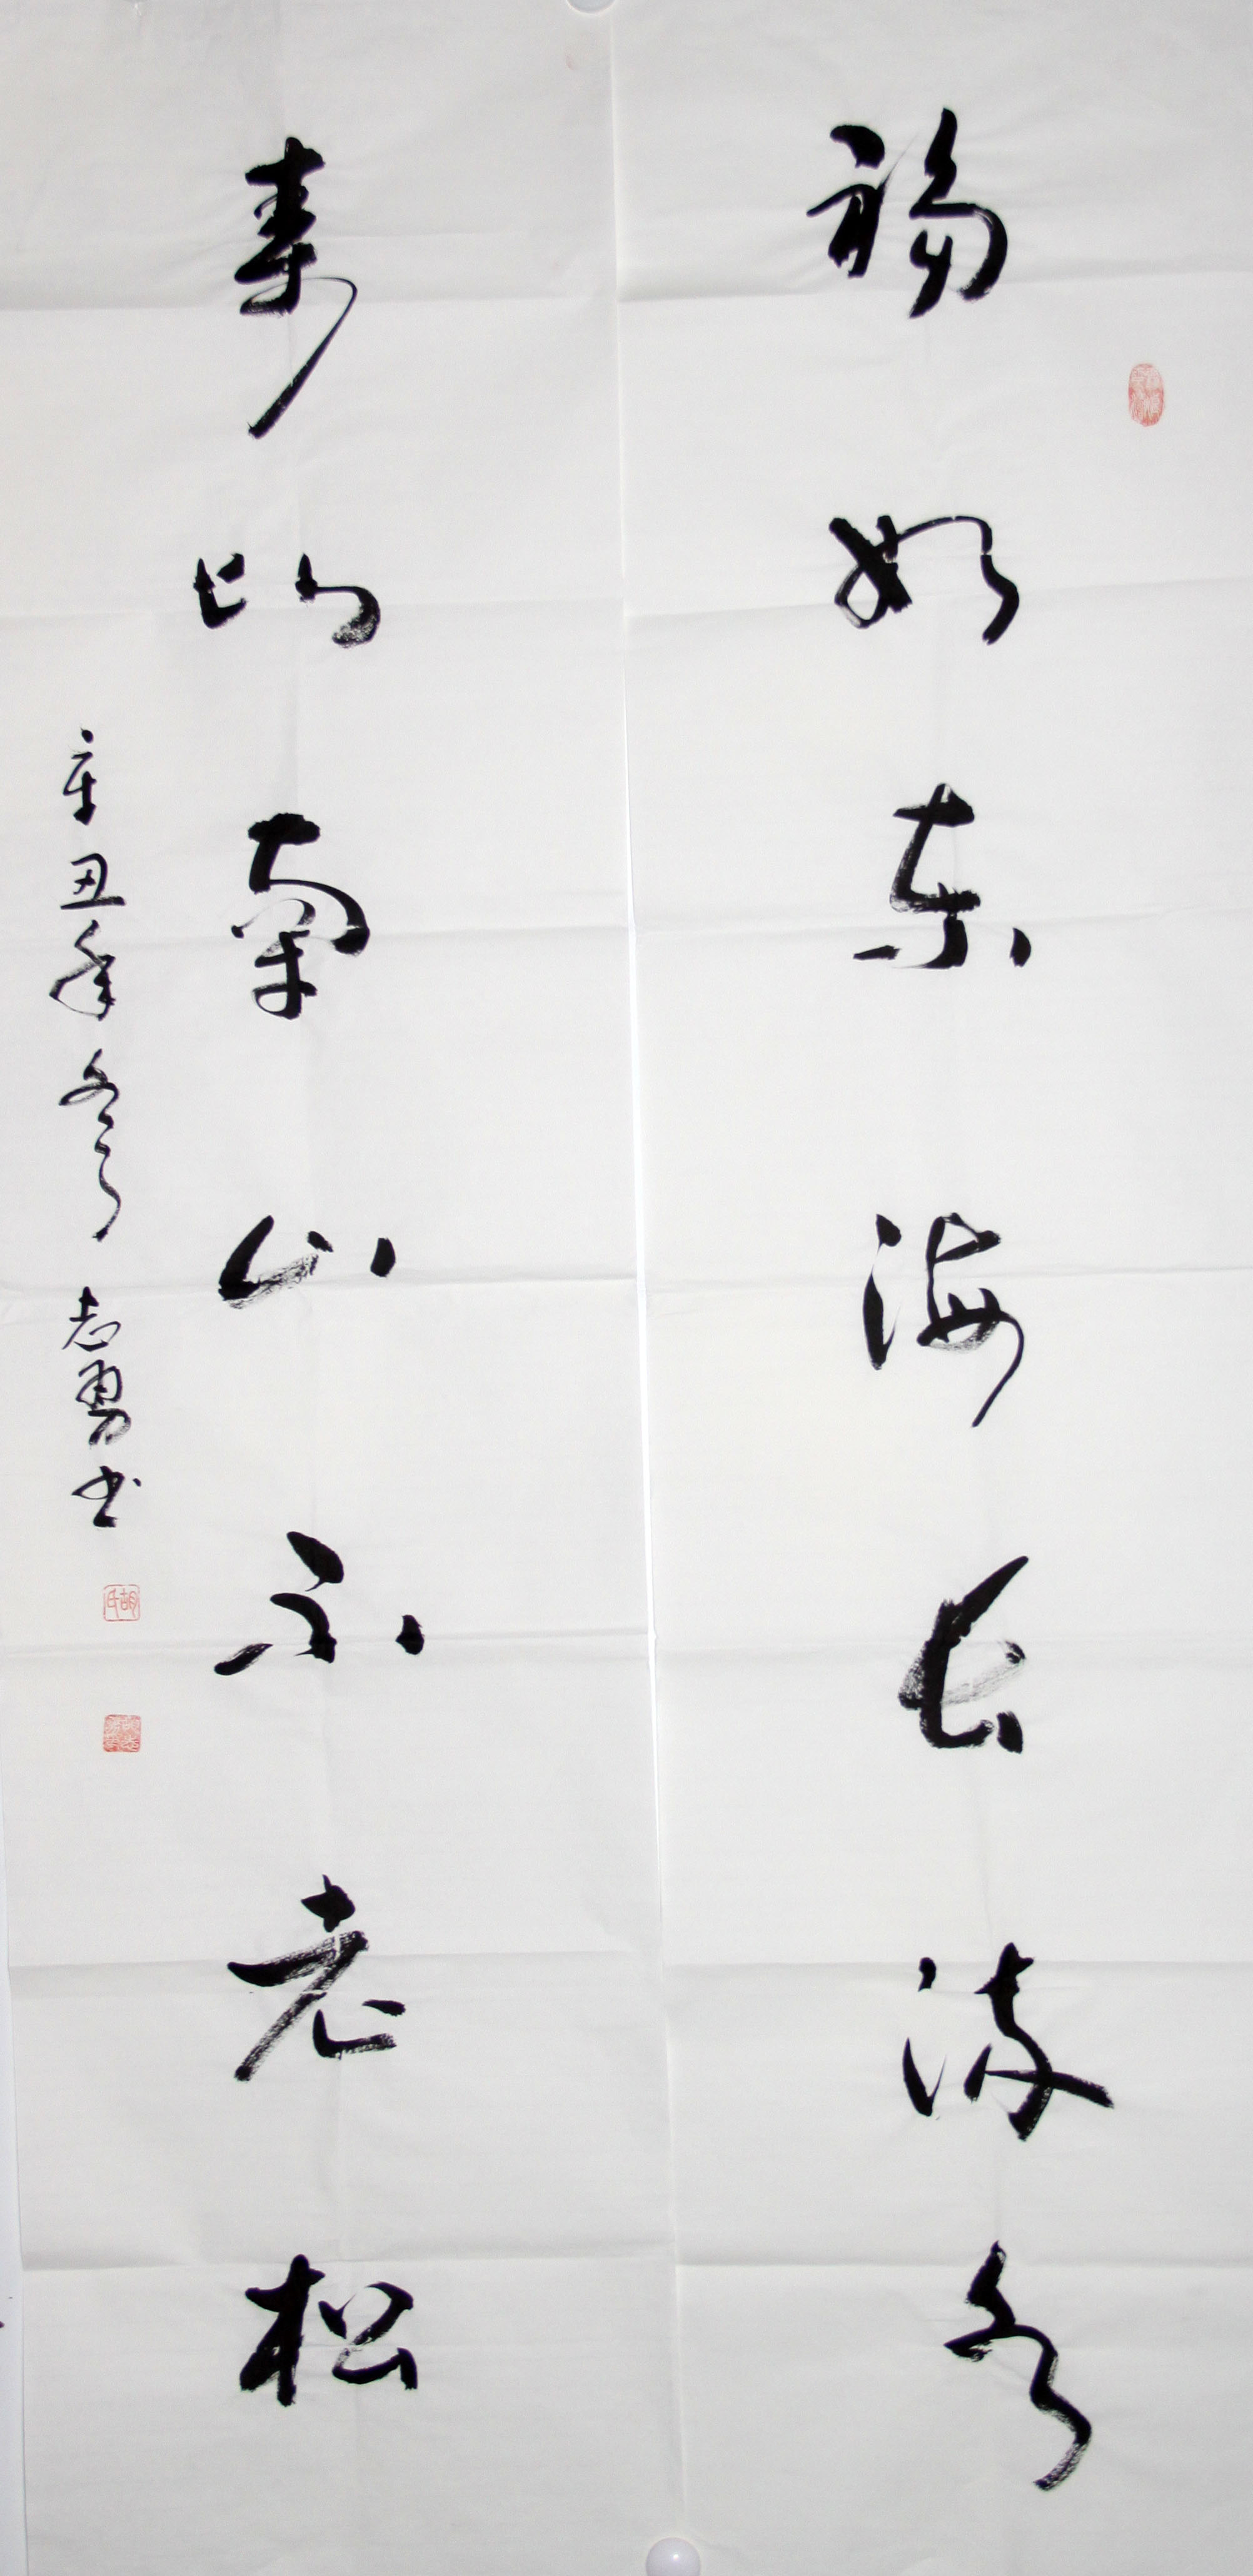 福如东海长流水
寿比南山不老松
辛丑年冬月 志勇书
胡氏